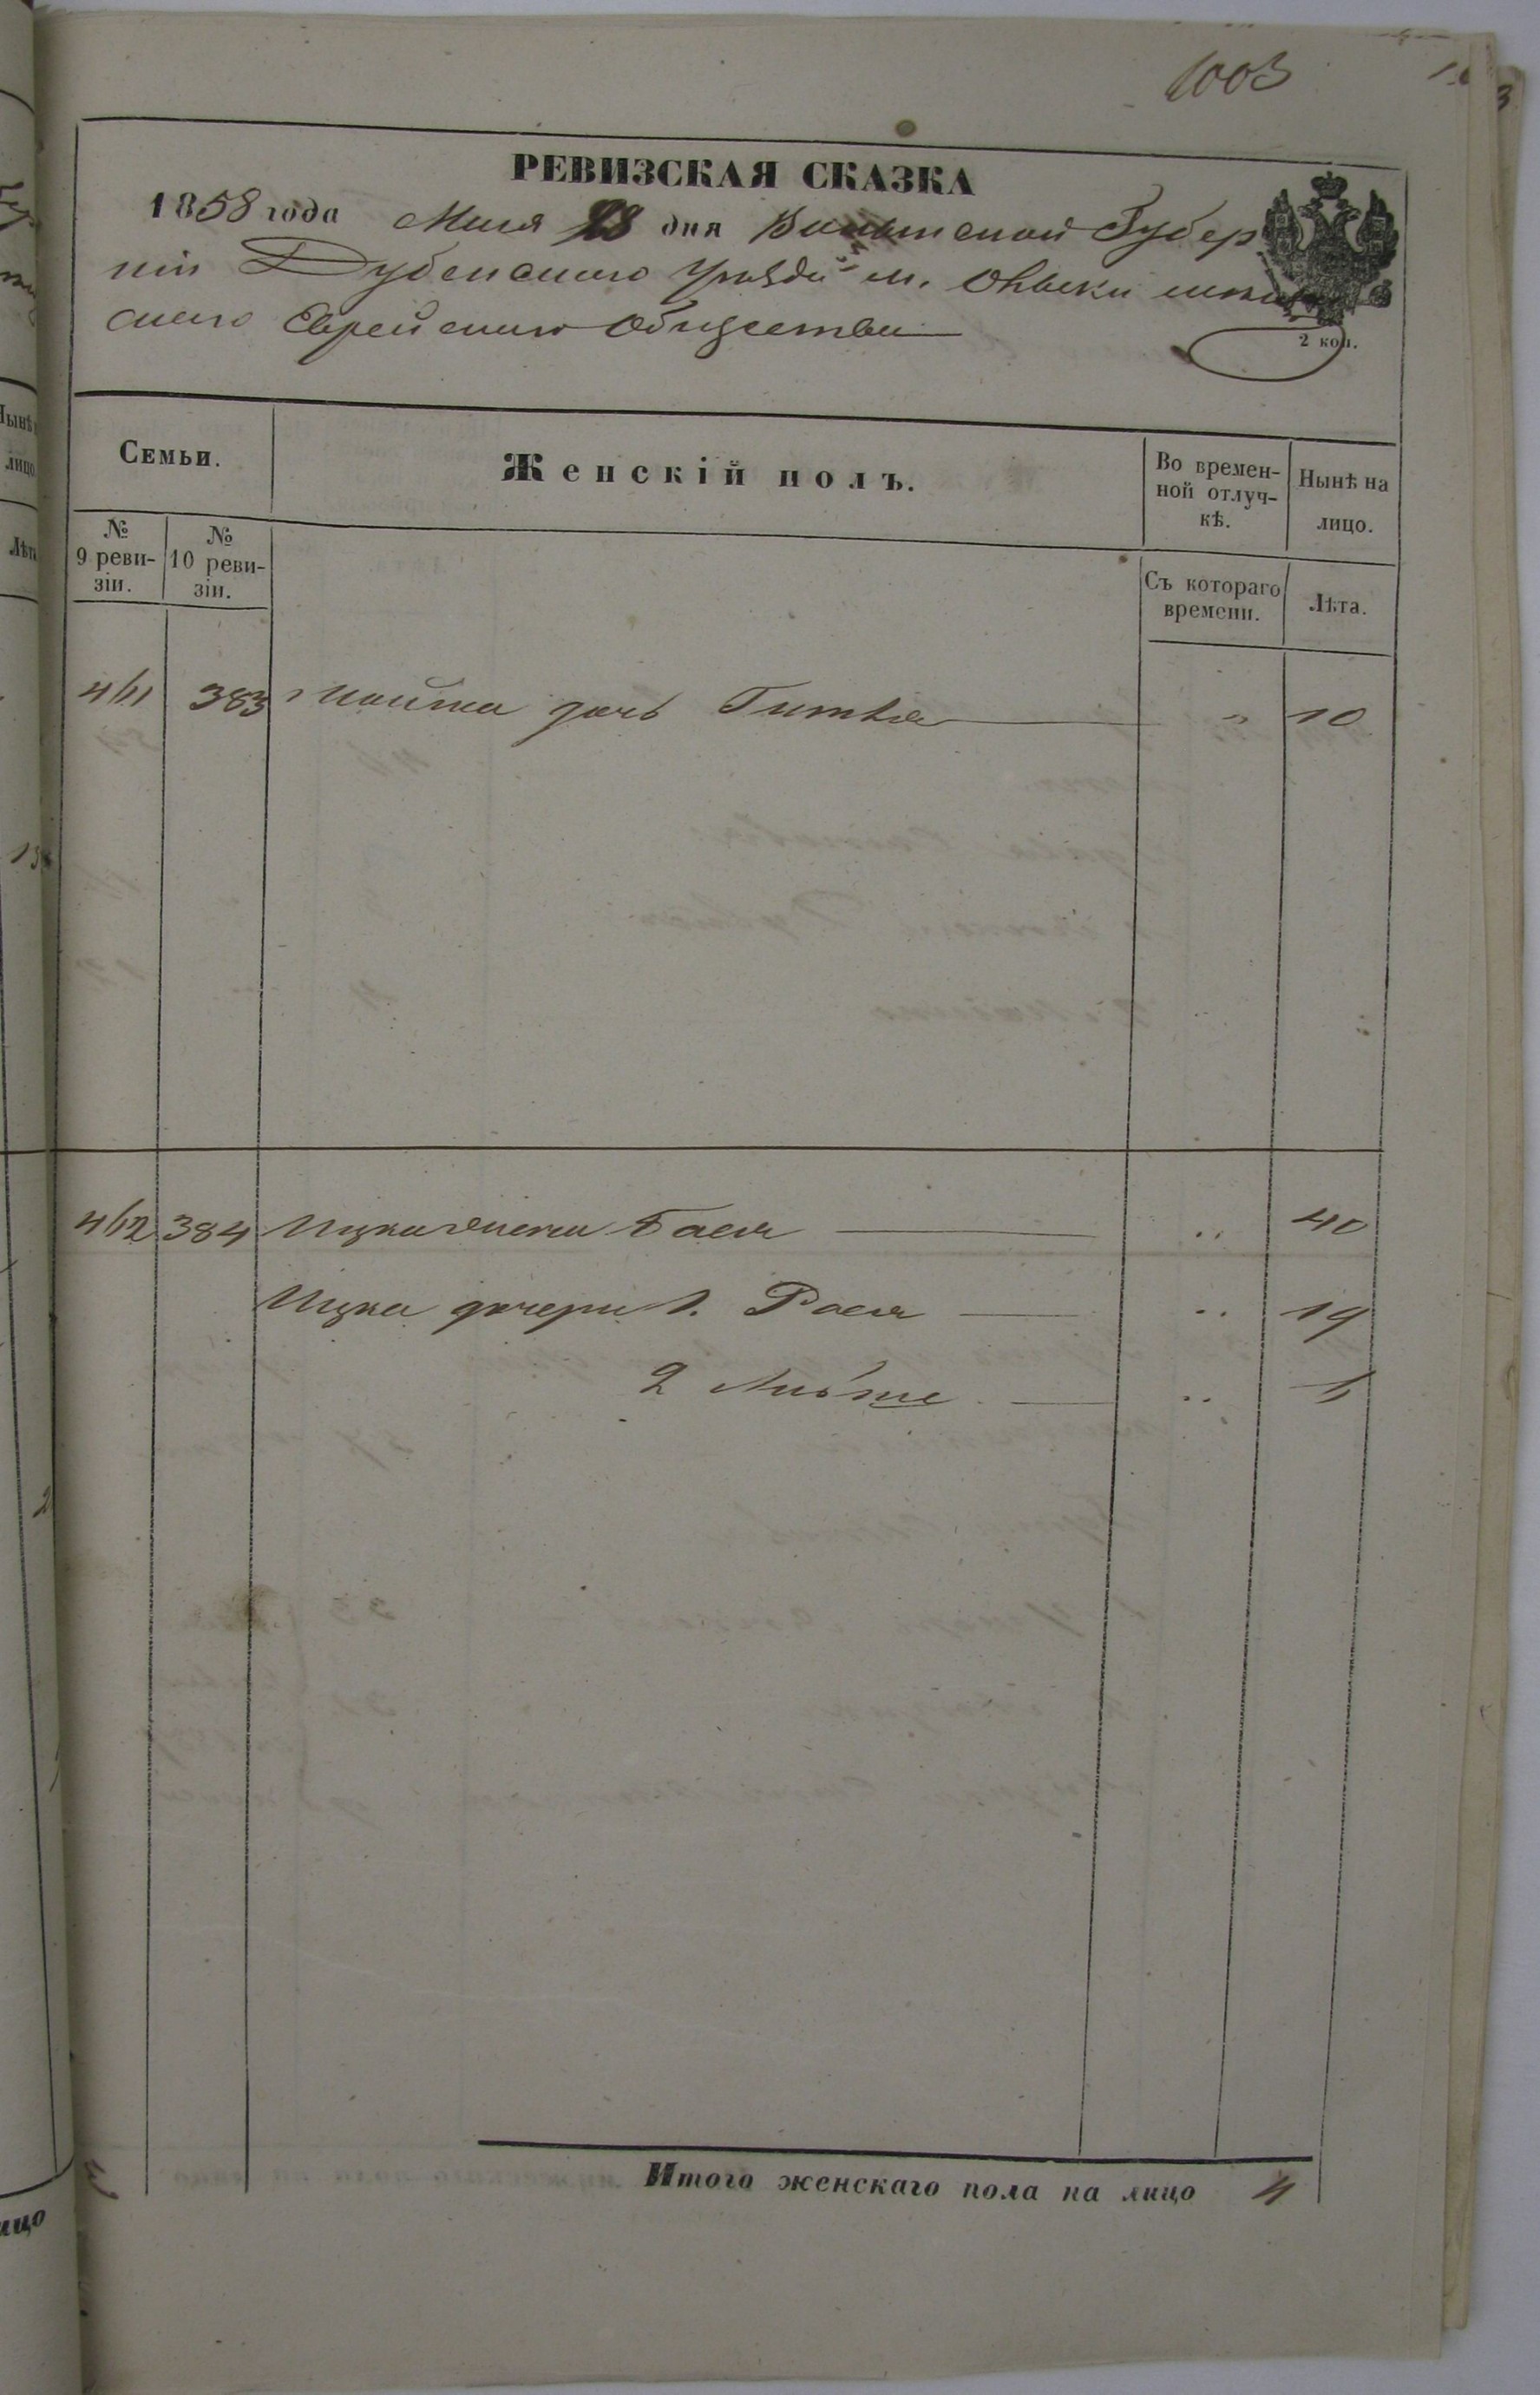 1003
РЕВИЗСКАЯ СКАЗКА
1858 года Мая 28 дня Волынской Губер
ніи Дубенскаго Уѣзда м. Олыки
скаго Еврейскаго Общества
2 коп.
Семьи.
Женскій полъ.
Во времен-
ной отлуч-
кѣ.
Нынѣ на
лицо.
№
9 реви-
зіи.
№
10 реви-
зіи.
Съ котораго
времени.
Лѣта.
383 дочь Гитля " 10
384 Ицка жена Бася " 40
Ицка дочери 1. Рася " 19
2 " 1
Итого женскаго пола на лицо 4